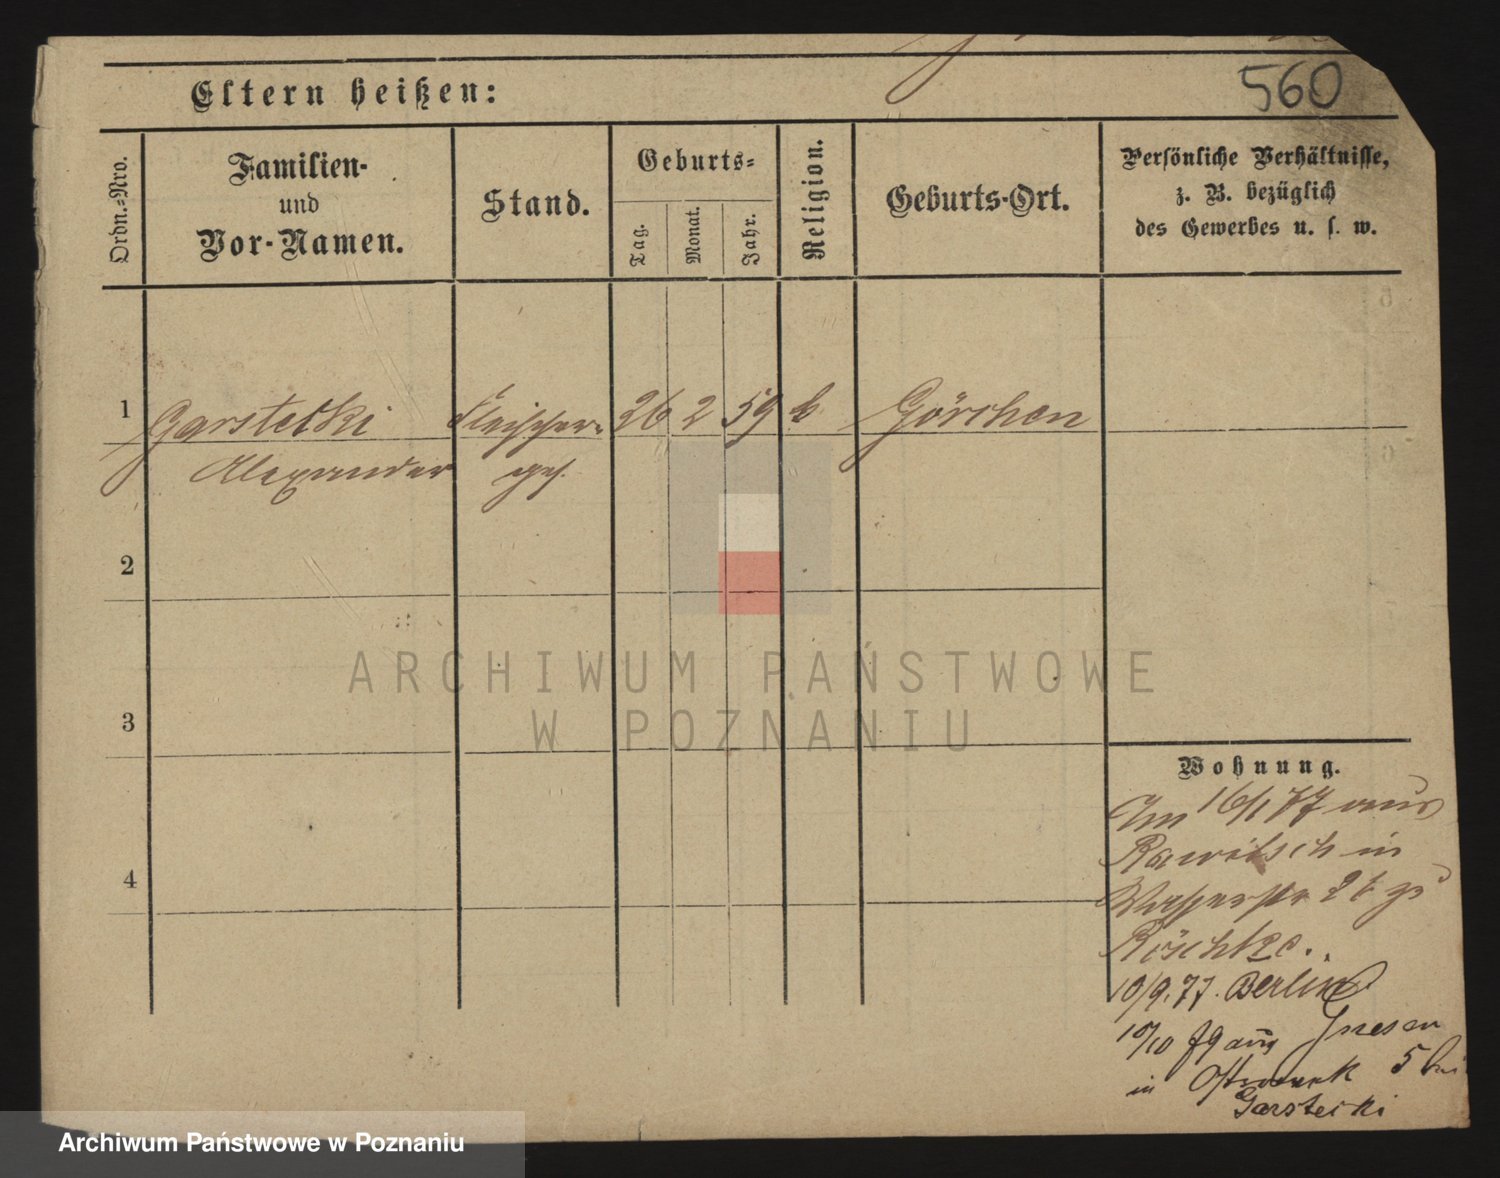 560
Eltern heißen:
Ordn.-Nro.
Familien-
und
Vor-Namen.
Stand.
Geburts-
Tag.
Monat.
Jahr.
Religion.
Geburts-Ort.
Persönliche Verhältnisse,
z. B. bezüglich
des Gewerbes u. s. w.
1
Garstecki Fleischer- 26 2 59 k Görchen
Alexander ges.
2
3
4
ARCHIWUM PAŃSTWOWE
W POZNANIU
Wohnung.
Im 16/1 77 aus
Rawitsch in
Wasserstr zu
10/9.77. Berlin
10/10 79 aus Gnesen
in Ostrowek 5 bei
Garstecki
Archiwum Państwowe w Poznaniu